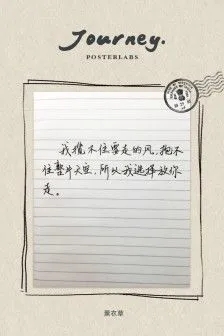 Journey.
POSTERLABS
我揽不住要走的风,抱不
住整片天空,所以我选择放你
走。
薰衣草